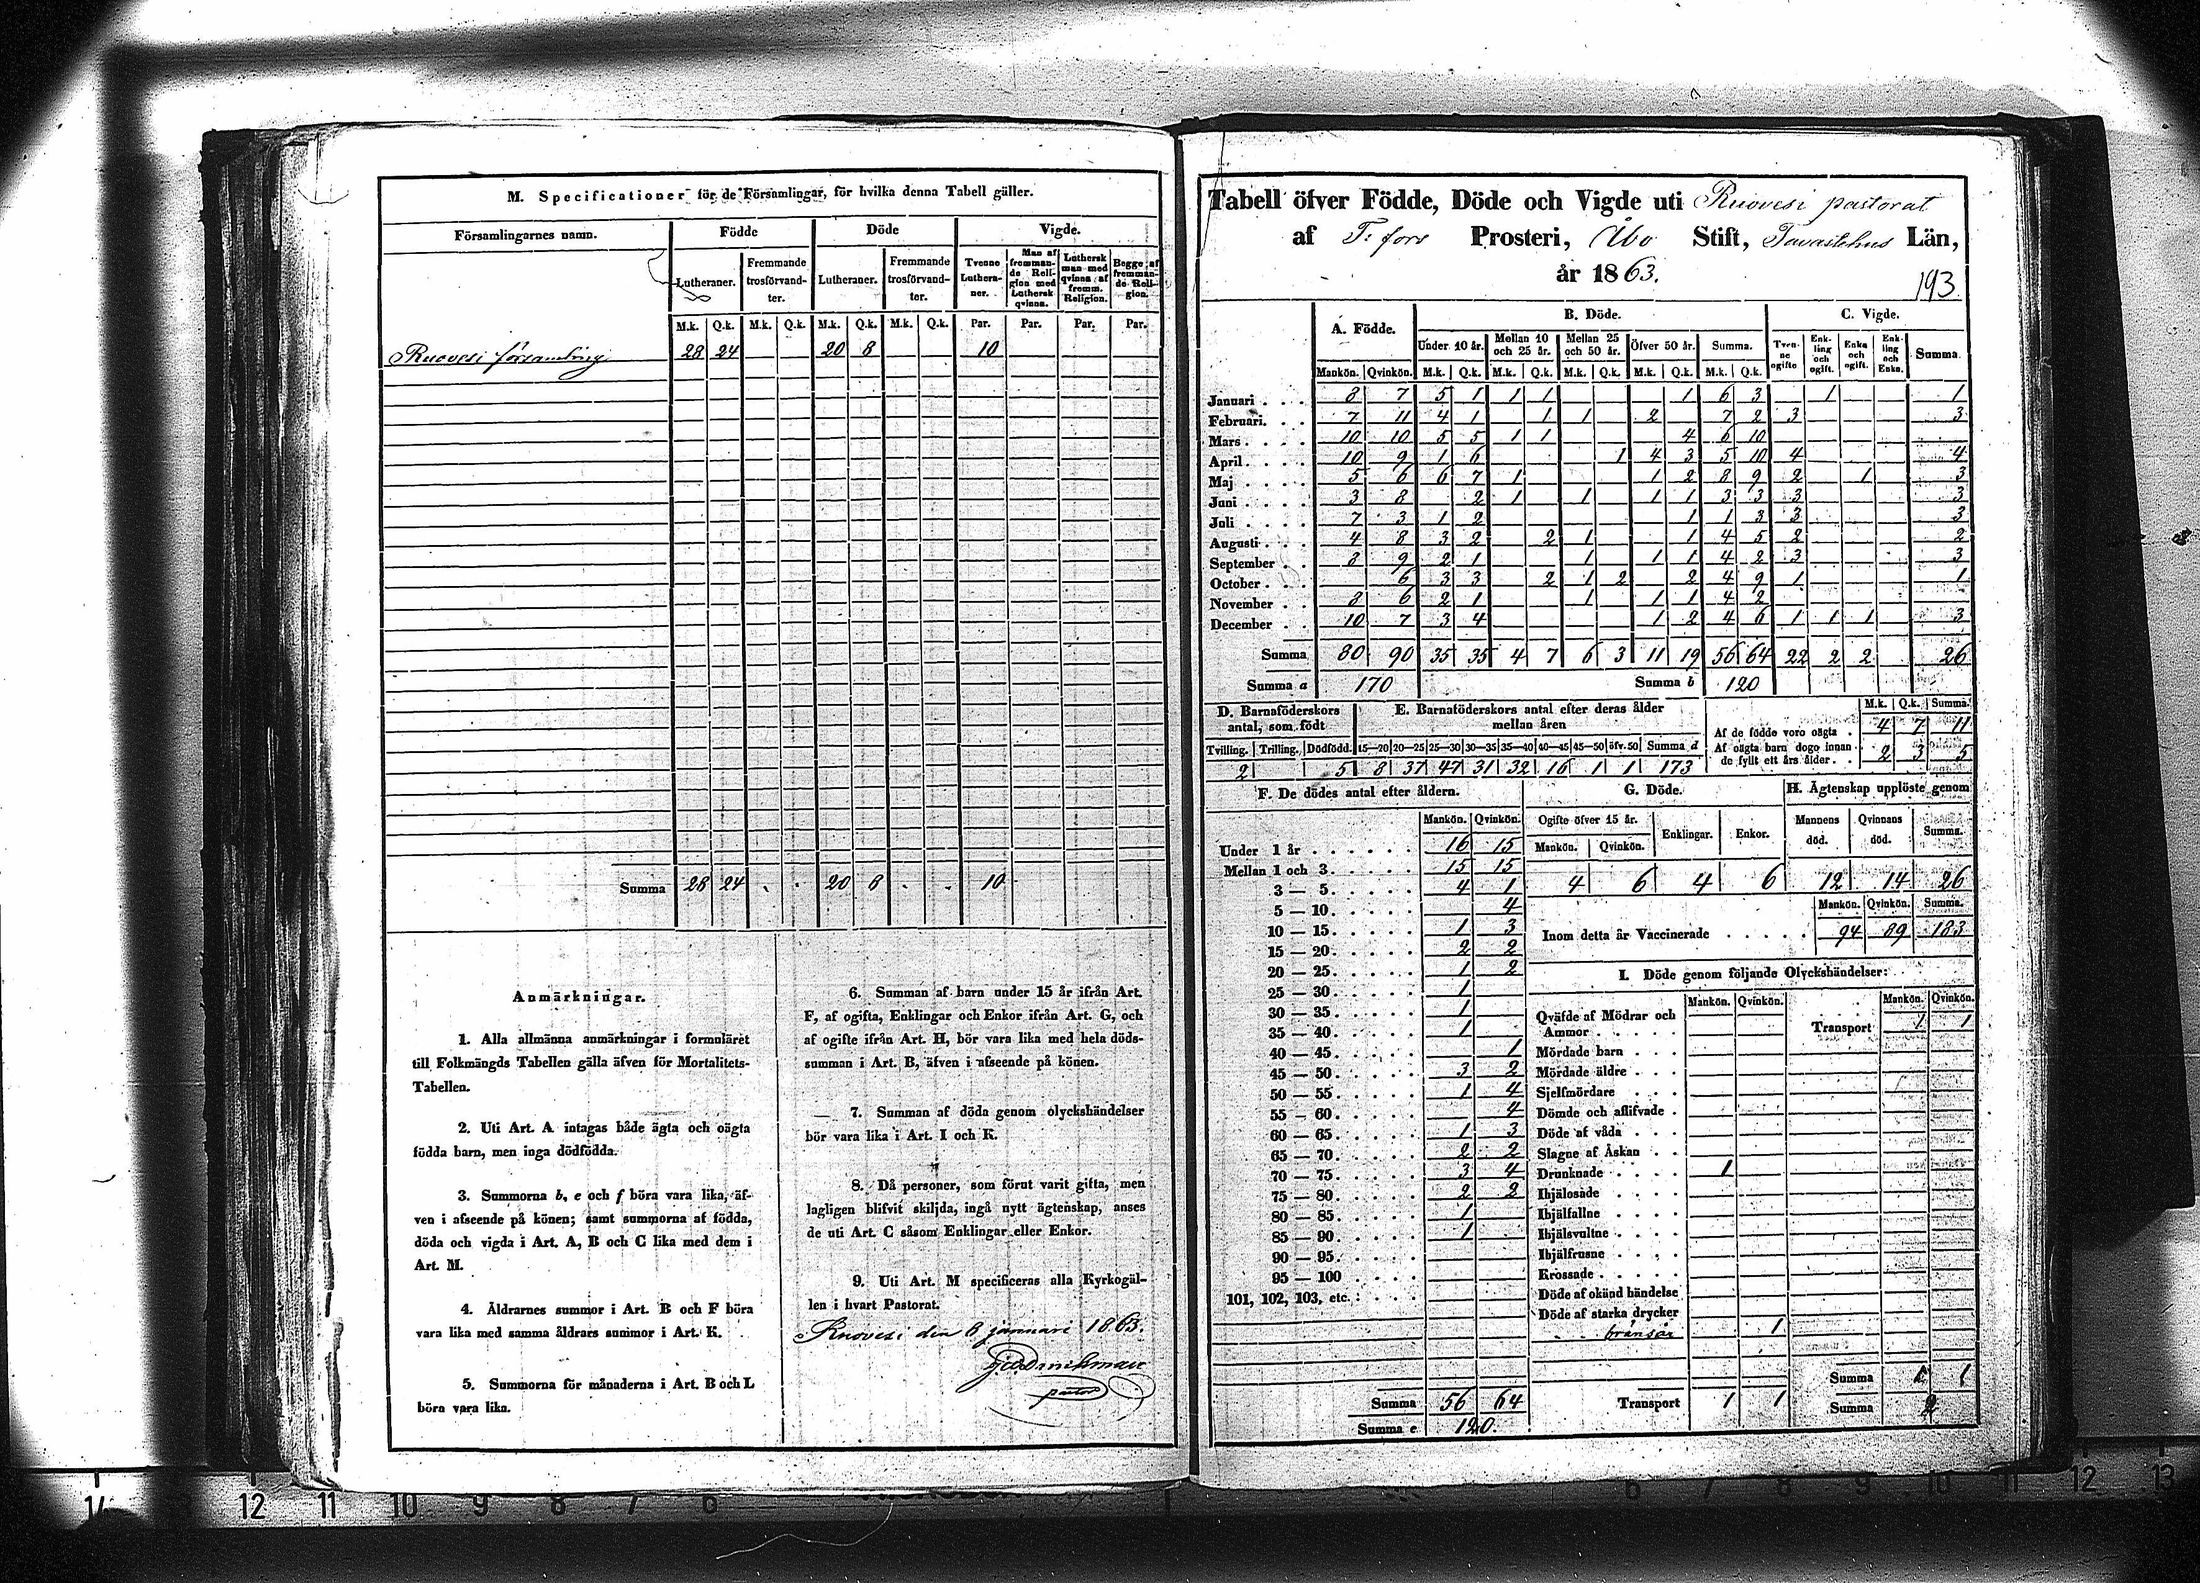 M. Specificationer för de Församlingar, för hvilka denna Tabell gäller.
Församlingarnes namn. Födde Döde Vigde.
Lutheraner. Fremmande trosförvandter. Lutheraner. Fremmande trosförvandter. Tvenne Lutheraner. Man af fremmande Religion med Luthersk qvinna. Luthersk man med qvinna af fremm. Religion. Begge af fremmande Religion.
M.k. Q.k. M.k. Q.k. M.k. Q.k. M.k. Q.k. Par. Par. Par. Par.
Ruovesi församling 28 24 20 8 10
Summa 28 24 20 8 10
Anmärkningar.
1. Alla allmänna anmärkningar i formuläret
till Folkmängds Tabellen gälla äfven för Mortalitets-
Tabellen.
2. Uti Art. A intagas både ägta och oägta
födda barn, men inga dödfödda.
3. Summorna b, e och f böra vara lika, äf-
ven i afseende på könen; samt summorna af födda,
döda och vigda i Art. A, B och C lika med dem i
Art. M.
4. Åldrarnes summor i Art. B och F böra
vara lika med samma åldrars summor i Art. K.
5. Summorna för månaderna i Art. B och L
böra vara lika.
6. Summan af barn under 15 år ifrån Art.
F, af ogifta, Enklingar och Enkor ifrån Art. G, och
af ogifte ifrån Art. H, bör vara lika med hela döds-
summan i Art. B, äfven i afseende på könen.
7. Summan af döda genom olyckshändelser
bör vara lika i Art. I och K.
8. Då personer, som förut varit gifta, men
lagligen blifvit skiljda, ingå nytt ägtenskap, anses
de uti Art. C såsom Enklingar eller Enkor.
9. Uti Art. M specificeras alla Kyrkogäl-
len i hvart Pastorat.
Ruovesi den 8 januari 1863.
pastor
Tabell öfver Födde, Döde och Vigde uti Ruovesi pastorat
af T:fors Prosteri, Åbo Stift, Tavastehus Län,
år 1863.
193
A. Födde. B. Döde. C. Vigde.
Under 10 år. Mellan 10 och 25 år. Mellan 25 och 50 år. Öfver 50 år. Summa. Tvenne ogifte Enkling och ogift. Enka och ogift. Enkling och Enka. Summa.
Mankön. Qvinkön. M.k. Q.k. M.k. Q.k. M.k. Q.k. M.k. Q.k. M.k. Q.k.
Januari 8 7 5 1 1 1 1 6 3 1 1
Februari. 7 11 4 1 1 1 2 7 2 3 3
Mars 10 10 5 5 1 1 4 6 10
April 10 9 1 6 1 4 3 5 10 4 4
Maj 5 6 6 7 1 1 2 8 9 2 1 3
Juni 3 8 2 1 1 1 1 3 3 3 3
Juli 7 3 1 2 1 1 3 3 3
Augusti 4 8 3 2 2 1 1 4 5 2 2
September 8 9 2 1 1 1 1 4 2 3 3
October 6 3 3 2 1 2 2 4 9 1 1
November 8 6 2 1 1 1 1 4 2
December 10 7 3 4 1 2 4 6 1 1 1 3
Summa 80 90 35 35 4 7 6 3 11 19 56 64 22 2 2 26
Summa a 170 Summa b 120
D. Barnaföderskors antal, som födt E. Barnaföderskors antal efter deras ålder mellan åren M.k. Q.k. Summa.
Af de födde voro oägta 4 7 11
Af oägta barn dogo innan de fyllt ett års ålder 2 3 5
Tvilling. Trilling. Dödfödd. 15—20 20—25 25—30 30—35 35—40 40—45 45—50 öfv. 50 Summa d
2 5 8 37 47 31 32 16 1 1 173
F. De dödes antal efter åldern.
Mankön. Qvinkön.
Under 1 år 16 15
Mellan 1 och 3 15 15
3 — 5 4 1
5 — 10 4
10 — 15 1 3
15 — 20 2 2
20 — 25 1 2
25 — 30 1
30 — 35 1
35 — 40 1
40 — 45 1
45 — 50 3 2
50 — 55 1 4
55 — 60 4
60 — 65 1 3
65 — 70 2 2
70 — 75 3 4
75 — 80 2 2
80 — 85 1
85 — 90 1
90 — 95
95 — 100
101, 102, 103, etc.
Summa 56 64
Summa e 120.
G. Döde. H. Ägtenskap upplöste genom
Ogifte öfver 15 år. Enklingar. Enkor. Mannens död. Qvinnans död. Summa.
Mankön. Qvinkön.
4 6 4 6 12 14 26
Mankön. Qvinkön. Summa.
Inom detta år Vaccinerade 94 89 183
I. Döde genom följande Olyckshändelser:
Mankön. Qvinkön. Mankön. Qvinkön.
Qväfde af Mödrar och Ammor Transport 1 1
Mördade barn
Mördade äldre
Sjelfmördare
Dömde och aflifvade
Döde af våda
Slagne af Åskan
Drunknade 1
Ihjälosade
Ihjälfallne
Ihjälsvultne
Ihjälfrusne
Krossade
Döde af okänd händelse
Döde af starka drycker
1
Summa 1 1
Transport 1 1 Summa 2